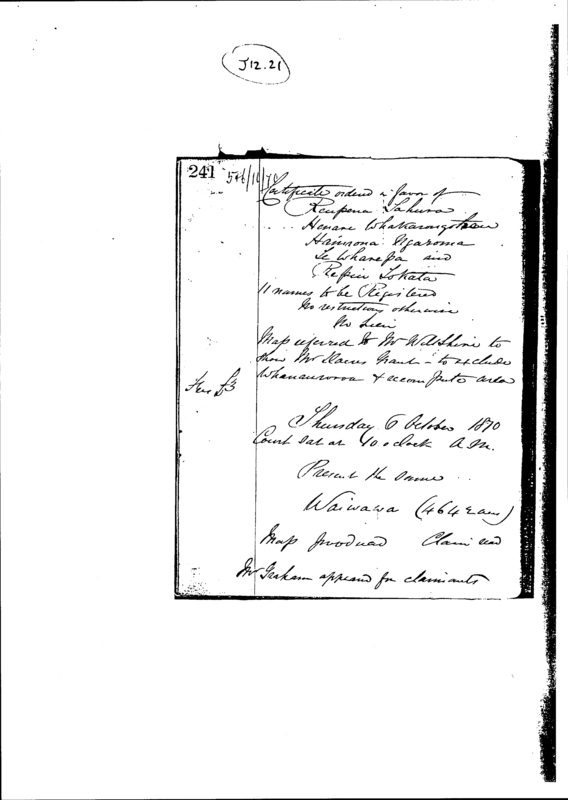 J12.21
241 5th/10/70
Certificate ordered in favor of
Reupena Tahura
Henare Whakarongotai
Hamiona Ngaroma
Te Wharepa and
Repeir Tokata
11 names to be Registered
No restrictions otherwise
No lien
Map referred to Mr Wiltshire to
show Mr Daves Grant - to exclude
Whanauwroa & recompute area
Fee £3
Thursday 6 October 1870
Court sat at 10 oclock A.M.
Present the same
Waiwawa (464 acres)
Map produced Claim read
Mr Graham appeared for claimants